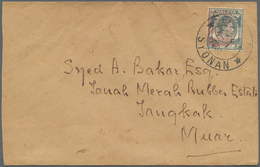 MALAYA
SYONAN
Syed A. Bakar, Esq.
Tanah Merah Rubber Estate
Tangkak
Muar.